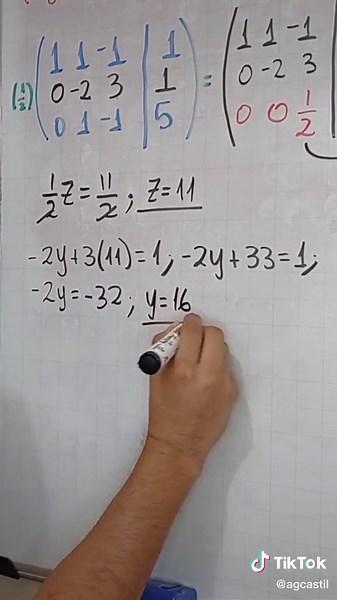 1 1 -1 | 1 1 1 -1
(1/2) 0 -2 3 | 1 = 0 -2 3
0 1 -1 | 5 0 0 1/2
1/2 z = 11/2 ; z = 11
-2y+3(11)=1; -2y+33=1;
-2y=-32; y=16
TikTok
@agcastil